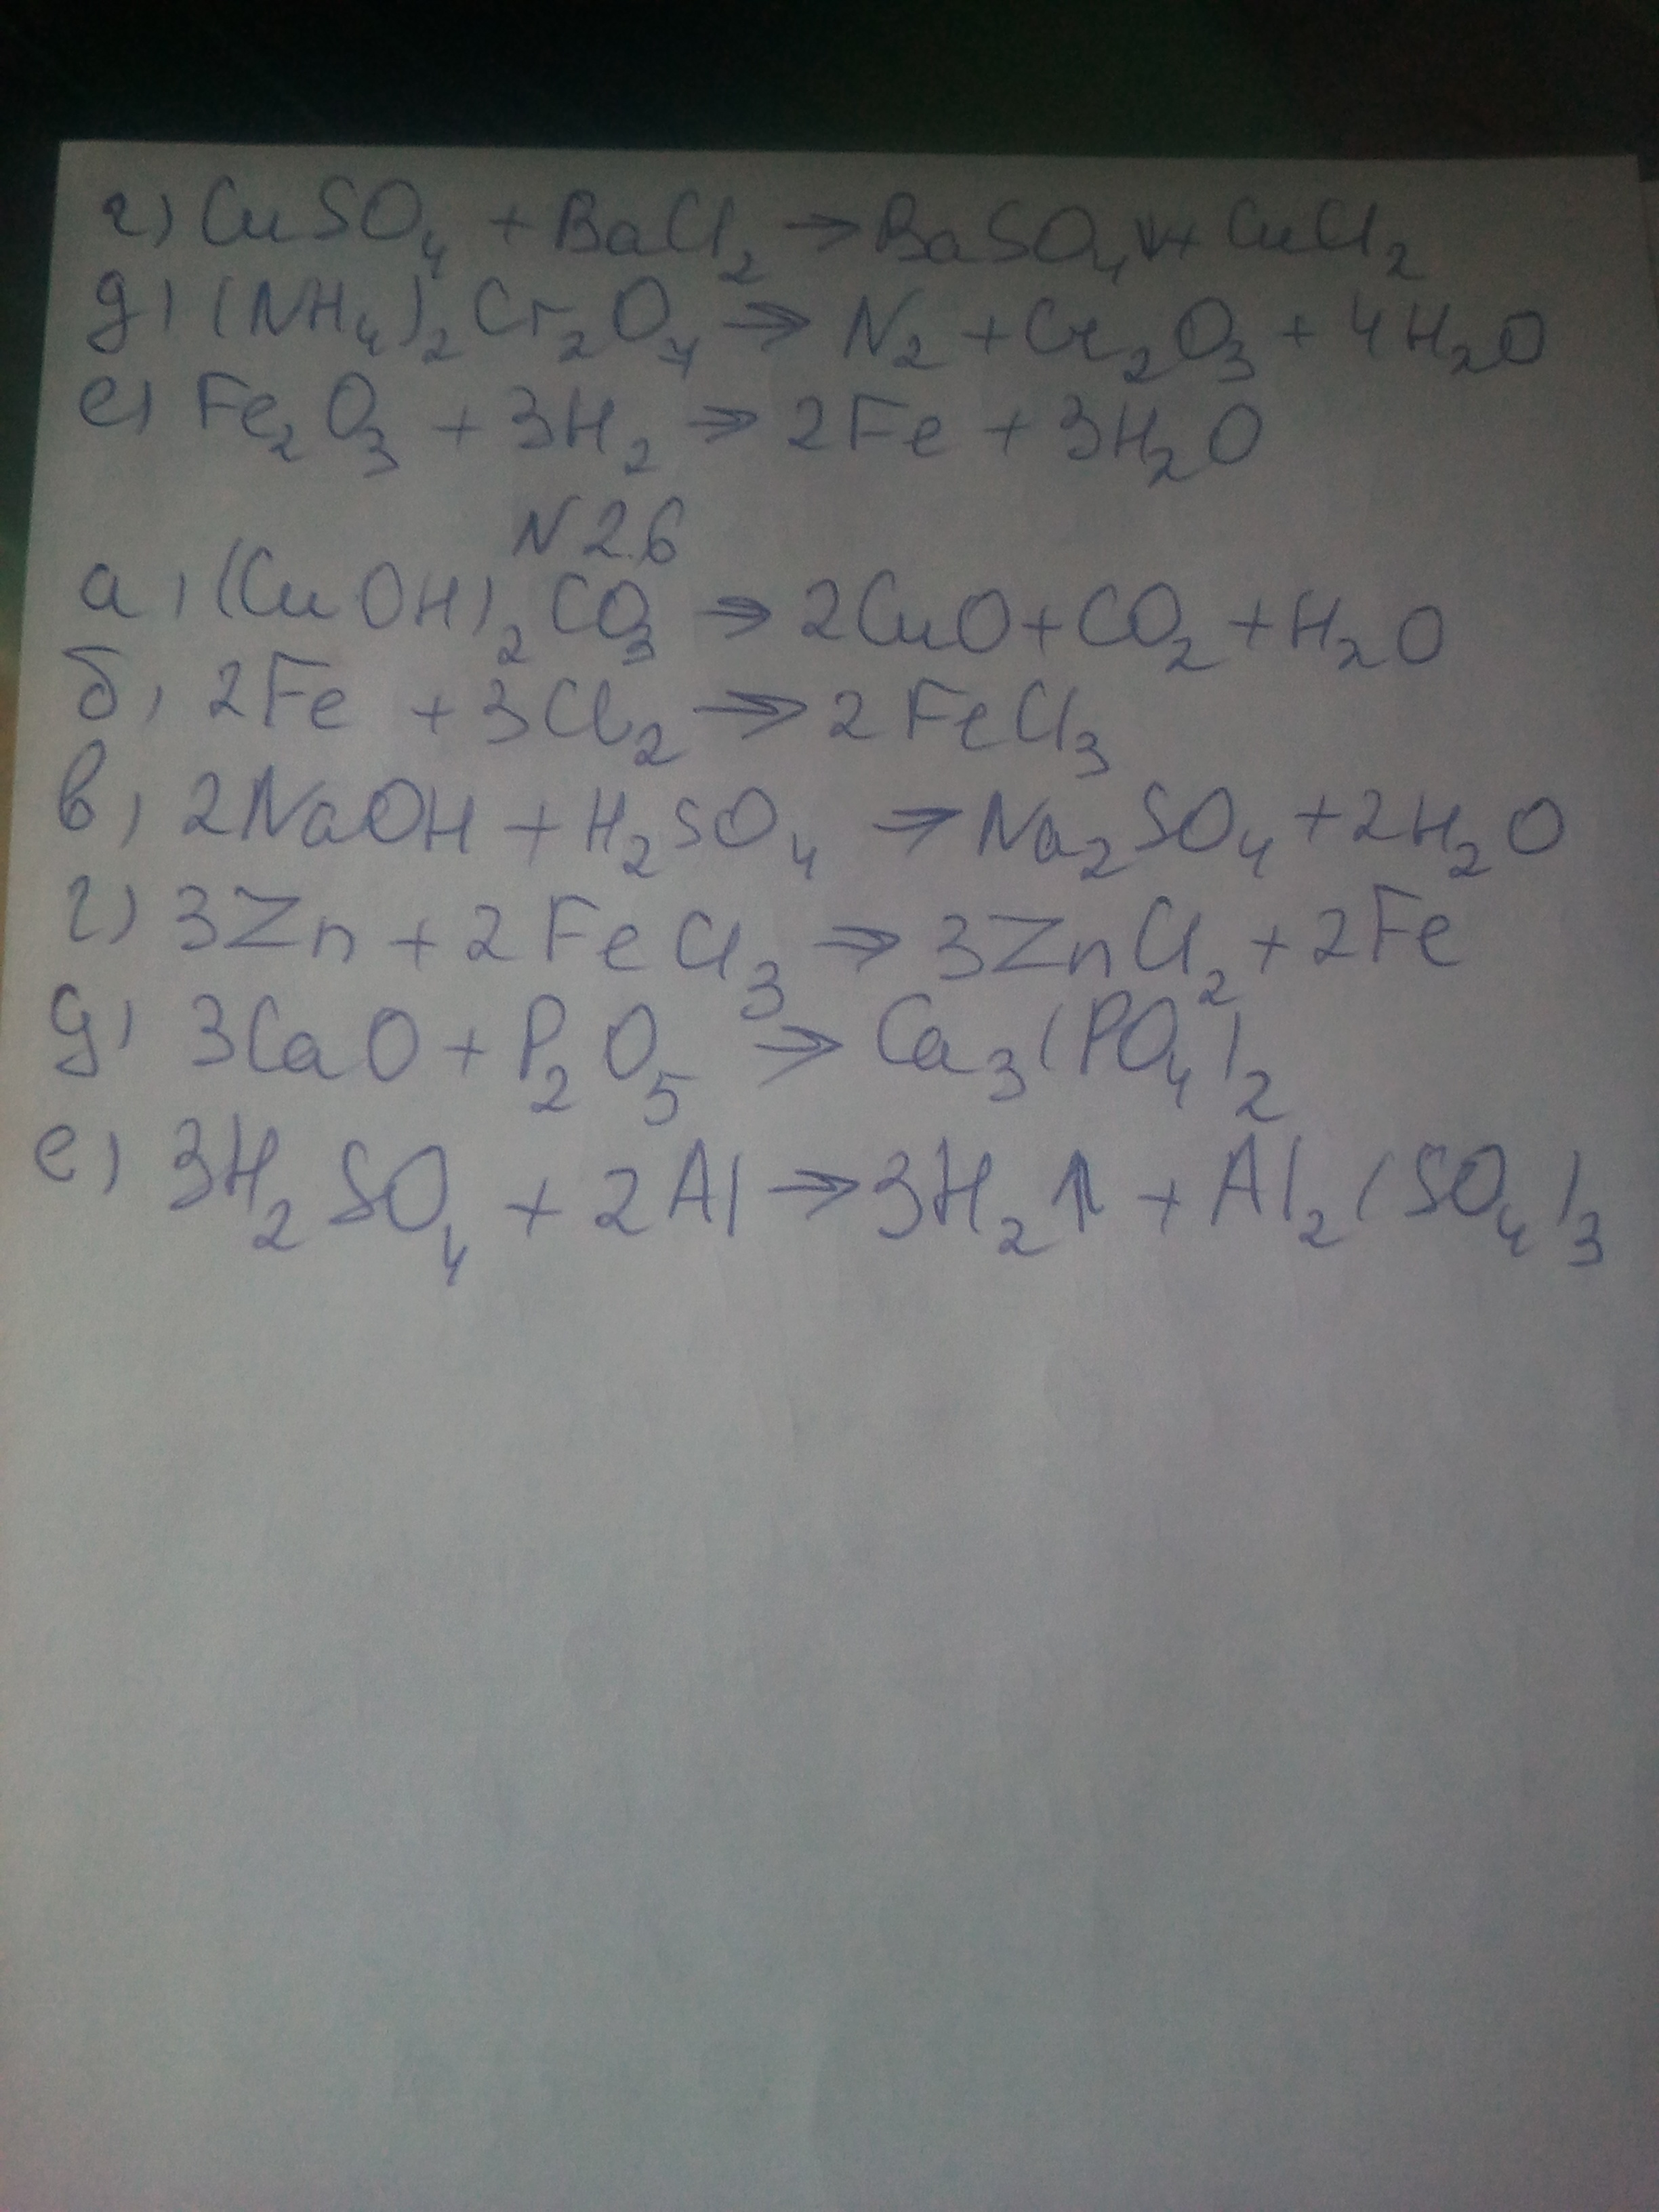 г) CuSO₄ + BaCl₂ → BaSO₄↓ + CuCl₂
д) (NH₄)₂Cr₂O₇ → N₂ + Cr₂O₃ + 4H₂O
е) Fe₂O₃ + 3H₂ → 2Fe + 3H₂O
N26
а) (CuOH)₂CO₃ → 2CuO + CO₂ + H₂O
б) 2Fe + 3Cl₂ → 2FeCl₃
в) 2NaOH + H₂SO₄ → Na₂SO₄ + 2H₂O
г) 3Zn + 2FeCl₃ → 3ZnCl₂ + 2Fe
д) 3CaO + P₂O₅ → Ca₃(PO₄)₂
е) 3H₂SO₄ + 2Al → 3H₂↑ + Al₂(SO₄)₃